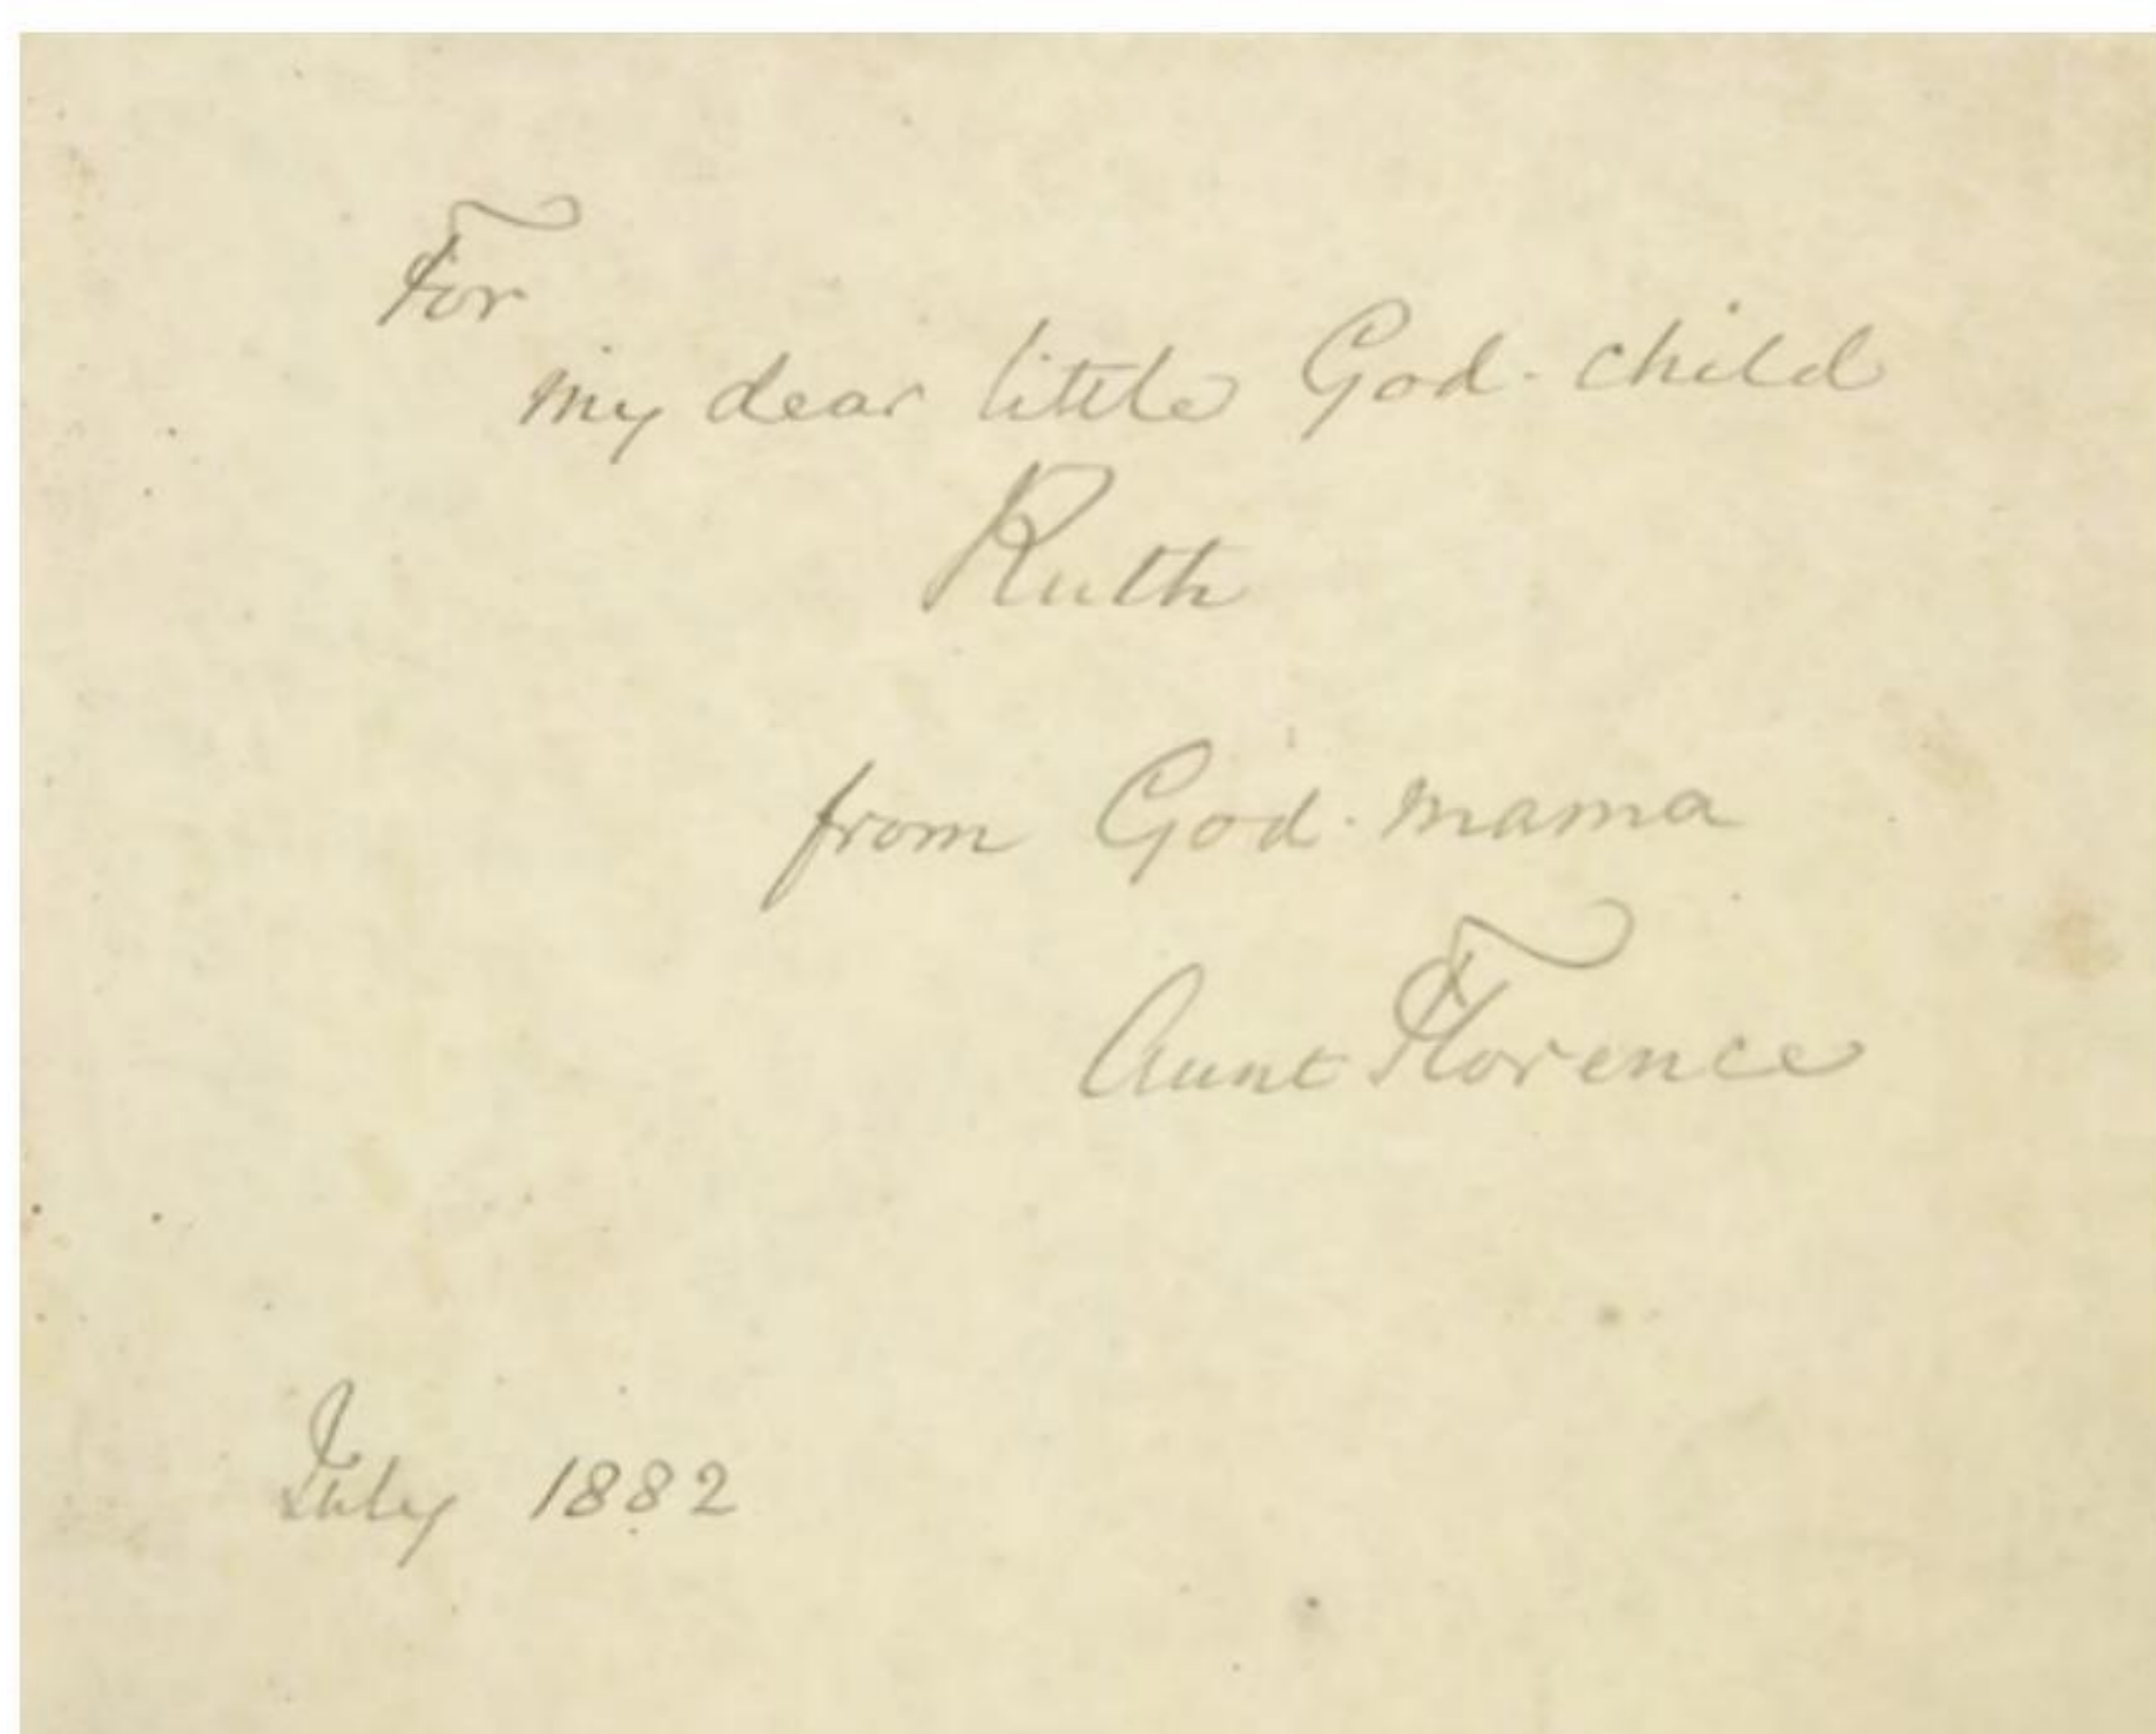 For
my dear little God-child
Ruth
from God-mama
Aunt Florence
July 1882